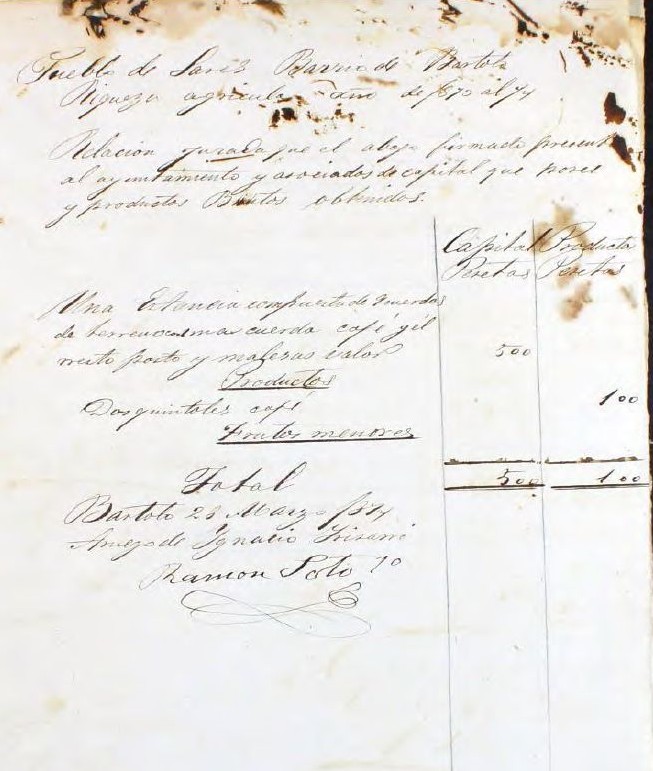 Pueblo de Lares Barrio de Bartolo
Riqueza agricola año de 1873 al 74
Relacion jurada que el abajo firmado present
al ayuntamiento y asociados de capital que posee
y productos Brutos obtenidos.
Capital Producto
Pesetas Pesetas
Una Estancia compuesta de cuerdas
de terreno con una cuerda café y el
resto pasto y malezas valor 500
Productos
100
Dos quintales café
Frutos menores
Total 500 100
Bartolo 28 Marzo 1874
Aruego de Ignacio Irisarri
Ramon Soto